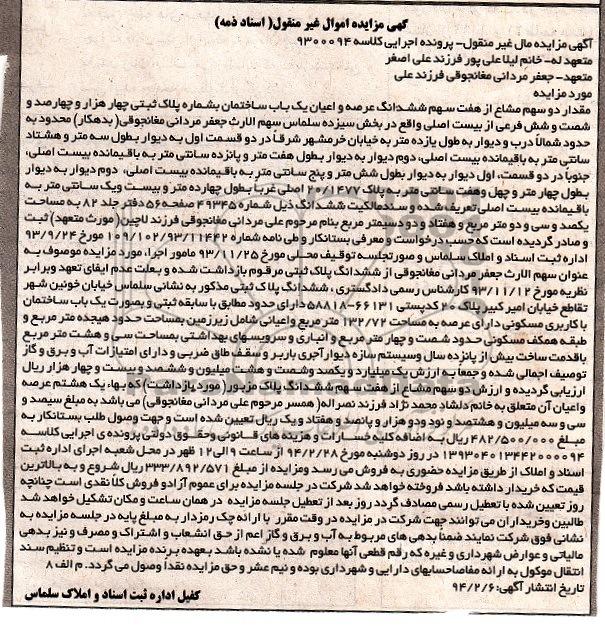 گهی مزایده اموال غیر منقول( اسناد ذمه)
آگهی مزایده مال غیر منقول- پرونده اجرایی کلاسه ۹۳۰۰۰۹۴
متعهد له- خانم لیلا علی پور فرزند علی اصغر
متعهد- جعفر مردانی مغانجوقی فرزند علی
مورد مزایده
مقدار دو سهم مشاع از هفت سهم ششدانگ عرصه و اعیان یک باب ساختمان بشماره پلاک ثبتی چهار هزار و چهارصد و
شصت و شش فرعی از بیست اصلی واقع در بخش سیزده سلماس سهم الارث جعفر مردانی مغانجوقی( بدهکار) محدود به
حدود شمالاً درب و دیوار به طول یازده متر به خیابان خرمشهر شرقاً در دو قسمت اول به دیوار بطول سه متر و هشتاد
سانتی متر به باقیمانده بیست اصلی، دوم دیوار به دیوار بطول هفت متر و پانزده سانتی متر به باقیمانده بیست اصلی،
جنوبا در دو قسمت، اول دیوار به دیوار بطول شش متر و پنج سانتی متر به باقیمانده بیست اصلی، دوم دیوار به دیوار
بطول چهار متر و چهل وهفت سانتی متر به پلاک ۲۰/۱۴۷۷ اصلی غرباً بطول چهارده متر و بیست ویک سانتی متر به
باقیمانده بیست اصلی تعریف شده و سند مالکیت ششدانگ ذیل شماره ۴۹۳۴۵ صفحه ۵۶ دفتر جلد ۸۲ به مساحت
یکصد و سی و دو متر مربع و هفتاد و دو دسیمتر مربع بنام مرحوم علی مردانی مغانجوقی فرزند لاچین( مورث متعهد) ثبت
و صادر گردیده است که حسب درخواست و معرفی بستانکار و طی نامه شماره ۱۰۶/۱۰۲/۹۳/۱۱۴۴۲ مورخ ۹۳/۹/۲۴
اداره ثبت اسناد و املاک سلماس و صورتجلسه توقیف محلی مورخ ۹۳/۱۱/۲۵ مامور اجرا، مورد مزایده موصوف به
عنوان سهم الارث جعفر مردانی مغانجوقی از ششدانگ پلاک ثبتی مرقوم بازداشت شده و بعلت عدم ایفای تعهد وبرابر
نظریه مورخ ۹۳/۱۱/۱۲ کارشناس رسمی دادگستری ، ششدانگ پلاک ثبتی مذکور به نشانی سلماس خیابان خونین شهر
تقاطع خیابان امیر کبیر پلاک ۲۰ کدپستی ۶۶۱۳۱-۵۸۸۱۸ دارای حدود مطابق با سابقه ثبتی و بصورت یک باب ساختمان
با کاربری مسکونی دارای عرصه به مساحت ۱۳۲/۷۲ متر مربع واعیانی شامل زیرزمین بمساحت حدود هیجده متر مربع و
طبقه همکف مسکونی حدود شصت و چهار متر مربع و انباری و سرویسهای بهداشتی بمساحت سی و هشت متر مربع
باقدمت ساخت بیش از پانزده سال وسیستم سازه دیوارآجری باربر و سقف طاق ضربی و دارای امتیازات آب و برق و گاز
توصیف اجمالی شده و جمعاً به ارزش یک میلیارد و یکصد وشصت و هشت میلیون و ششصد و بیست و چهار هزار ریال
ارزیابی گردیده و ارزش دو سهم مشاع از هفت سهم ششدانگ پلاک مزبور( مورد بازداشت) که بهاء یک هشتم عرصه
واعیان آن متعلق به خانم دلشاد محمد نژاد فرزند نصراله( همسر مرحوم علی مردانی مغانجوقی) می باشد به مبلغ سیصد و
سی و سه میلیون و هشتصد و نود ودو هزار و پانصد و هفتاد و یک ریال تعیین شده است و جهت وصول طلب بستانکار به
مبلغ ۴۸۲/۵۰۰/۰۰۰ ریال به اضافه کلیه خسارات و هزینه های قانونی وحقوق دولتی پرونده ی اجرایی کلاسه
۱۳۹۳۰۴۰۱۳۴۴۲۰۰۰۰۹۴ در روز دوشنبه مورخ ۹۴/۲/۲۸ از ساعت ۹ الی ۱۲ ظهر در محل شعبه اجرای اداره ثبت
اسناد و املاک از طریق مزایده حضوری به فروش می رسد ومزایده از مبلغ ۳۳۳/۸۹۲/۵۷۱ ریال شروع و به بالاترین
قیمت که خریدار داشته باشد فروخته خواهد شد شرکت در جلسه مزایده برای عموم آزاد و فروش کلاً نقدی است چنانچه
روز تعیین شده با تعطیل رسمی مصادف گردد روز بعد از تعطیل جلسه مزایده در همان ساعت و مکان تشکیل خواهد شد
طالبین وخریداران می توانند جهت شرکت در مزایده در وقت مقرر با ارائه چک رمزدار به مبلغ پایه در جلسه مزایده به
نشانی فوق شرکت نمایند ضمنا بدهی های مربوط به آب و برق و گاز اعم از حق انشعاب و اشتراک و مصرف و نیز بدهی
مالیاتی و عوارض شهرداری و غیره که رقم قطعی آنها معلوم شده یا نشده باشد بعهده برنده مزایده است و تنظیم سند
انتقال موکول به ارائه مفاصاحسابهای دارایی و شهرداری بوده و نیم عشر و حق مزایده نقداً وصول می گردد. م الف ۸
تاریخ انتشار آگهی: ۹۴/۲/۶
کفیل اداره ثبت اسناد و املاک سلماس